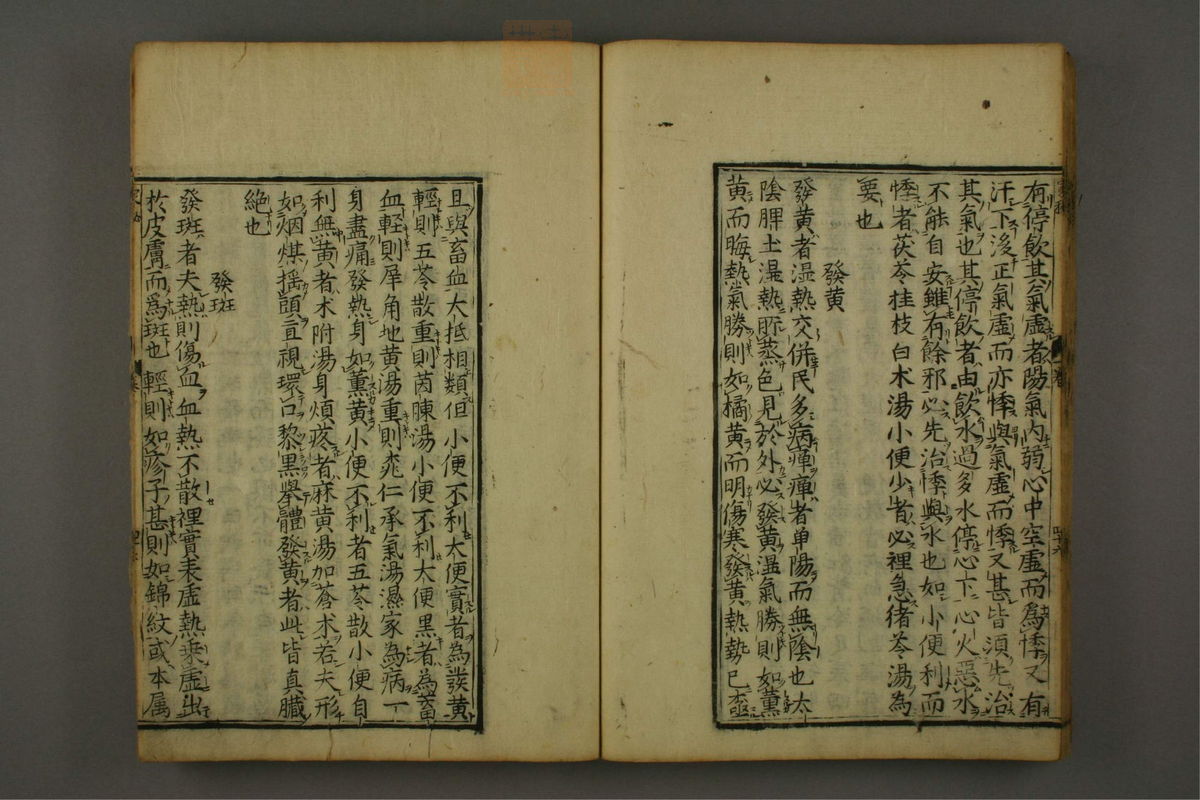 有停飲其氣虚者陽氣内弱心中空虚而爲悸又有
汗下後正氣虚而亦悸與氣虚而悸又甚皆須先治
其氣也其停飲者由飲水過多水停心下心火惡水
不能自安雖有餘邪必先治悸與水也如小便利而
悸者茯苓桂枝白术湯小便少者必裡急猪苓湯為
要也
發黄
發黄者濕熱交併民多病癉癉者单陽而無陰也太
陰脾土濕熱所蒸色見於外必發黄濕氣勝則如薫
黄而晦熱氣勝則如橘黄而明傷寒發黄熱勢已極
且與畜血大抵相類但小便不利大便實者為發黄
輕則五苓散重則茵蔯湯小便不利大便黒者為畜
血輕則犀角地黄湯重則桃仁承氣湯濕家為病一
身盡痛發熱身如薫黄小便不利者五苓散小便自
利無黄者术附湯身煩疼者麻黄湯加蒼术若夫形
如烟煤揺頭直視環口黎黒擧體發黄者此皆真臓
絶也
發斑
發斑者夫熱則傷血血熱不散裡實表虚熱乗虚出
於皮膚而為斑也輕則如疹子甚則如錦紋或本属